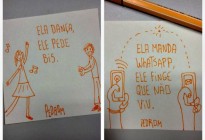 ELA DANÇA,
ELE PEDE
BIS.
PEDROM
ELA MANDA
WHATSAPP,
ELE FINGE
QUE NÃO
VIU.
PEDROM